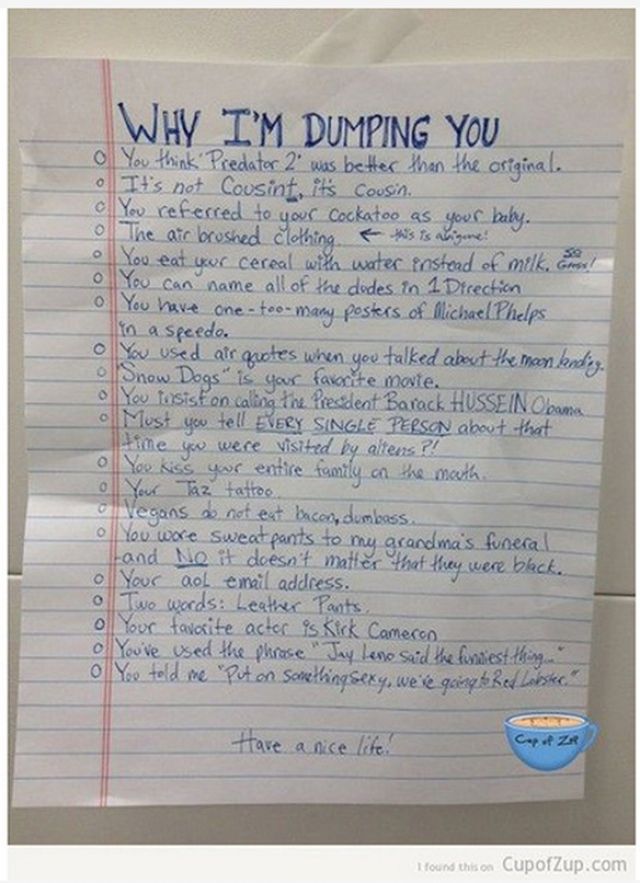 WHY I'M DUMPING YOU
You think "Predator 2" was better than the original.
It's not Cousint, it's cousin.
You referred to your cockatoo as your baby.
The air brushed clothing. ← this is a bigone!
You eat your cereal with water instead of milk. SO Gross!
You can name all of the dudes in 1 Direction
You have one-too-many posters of Michael Phelps
in a speedo.
You used air quotes when you talked about the moon landing.
"Snow Dogs" is your favorite movie.
You insist on calling the President Barack HUSSEIN Obama
Must you tell EVERY SINGLE PERSON about that
time you were visited by aliens?!
You kiss your entire family on the mouth.
Your Taz tattoo.
Vegans do not eat bacon, dumbass.
You wore sweatpants to my grandma's funeral
-and NO it doesn't matter that they were black.
Your aol email address.
Two words: Leather Pants.
Your favorite actor is Kirk Cameron
You've used the phrase "Jay Leno said the funniest thing..."
You told me "Put on something sexy, we're going to Red Lobster."
Have a nice life!
Cup of Zup
I found this on CupofZup.com